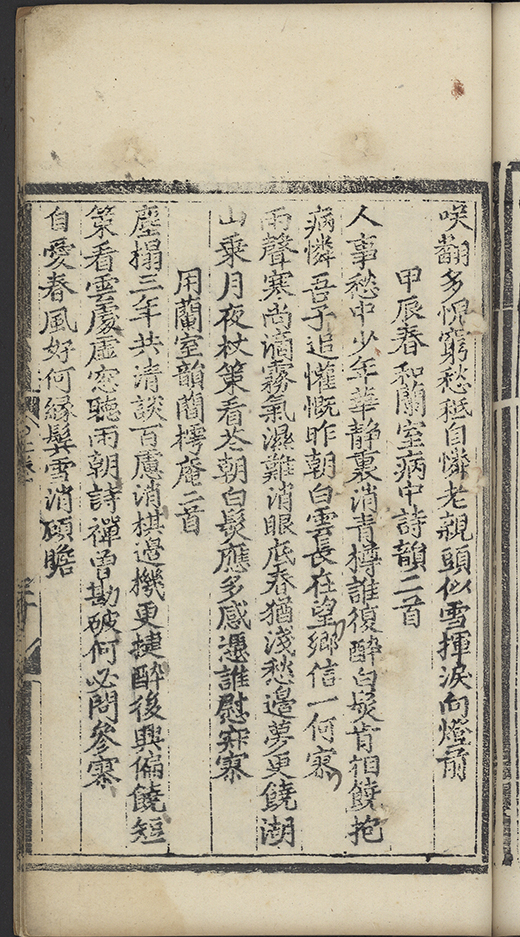 咲翻多怳窮愁秪自憐老親頭似雪揮淚向燈前
甲辰春和蘭室病中詩韻二首
人事愁中少年華静裏消青樽誰復醉白髮肯相饒抱
病憐吾子追懽慨昨朝白雲長在望鄉信一何寥
雨聲寒尚滴霧氣濕難消眼底春猶淺愁邊夢更饒湖
山乘月夜杖策看花朝白髮應多感憑誰慰寂寥
用蘭室韻蘭樗庵二首
塵榻三年共清談百慮消棋邊機更捷醉後興偏饒短
策看雲處虛窓聽雨朝詩禪曾勘破何必問參寥
自愛春風好何緣鬂雪消碩瞻